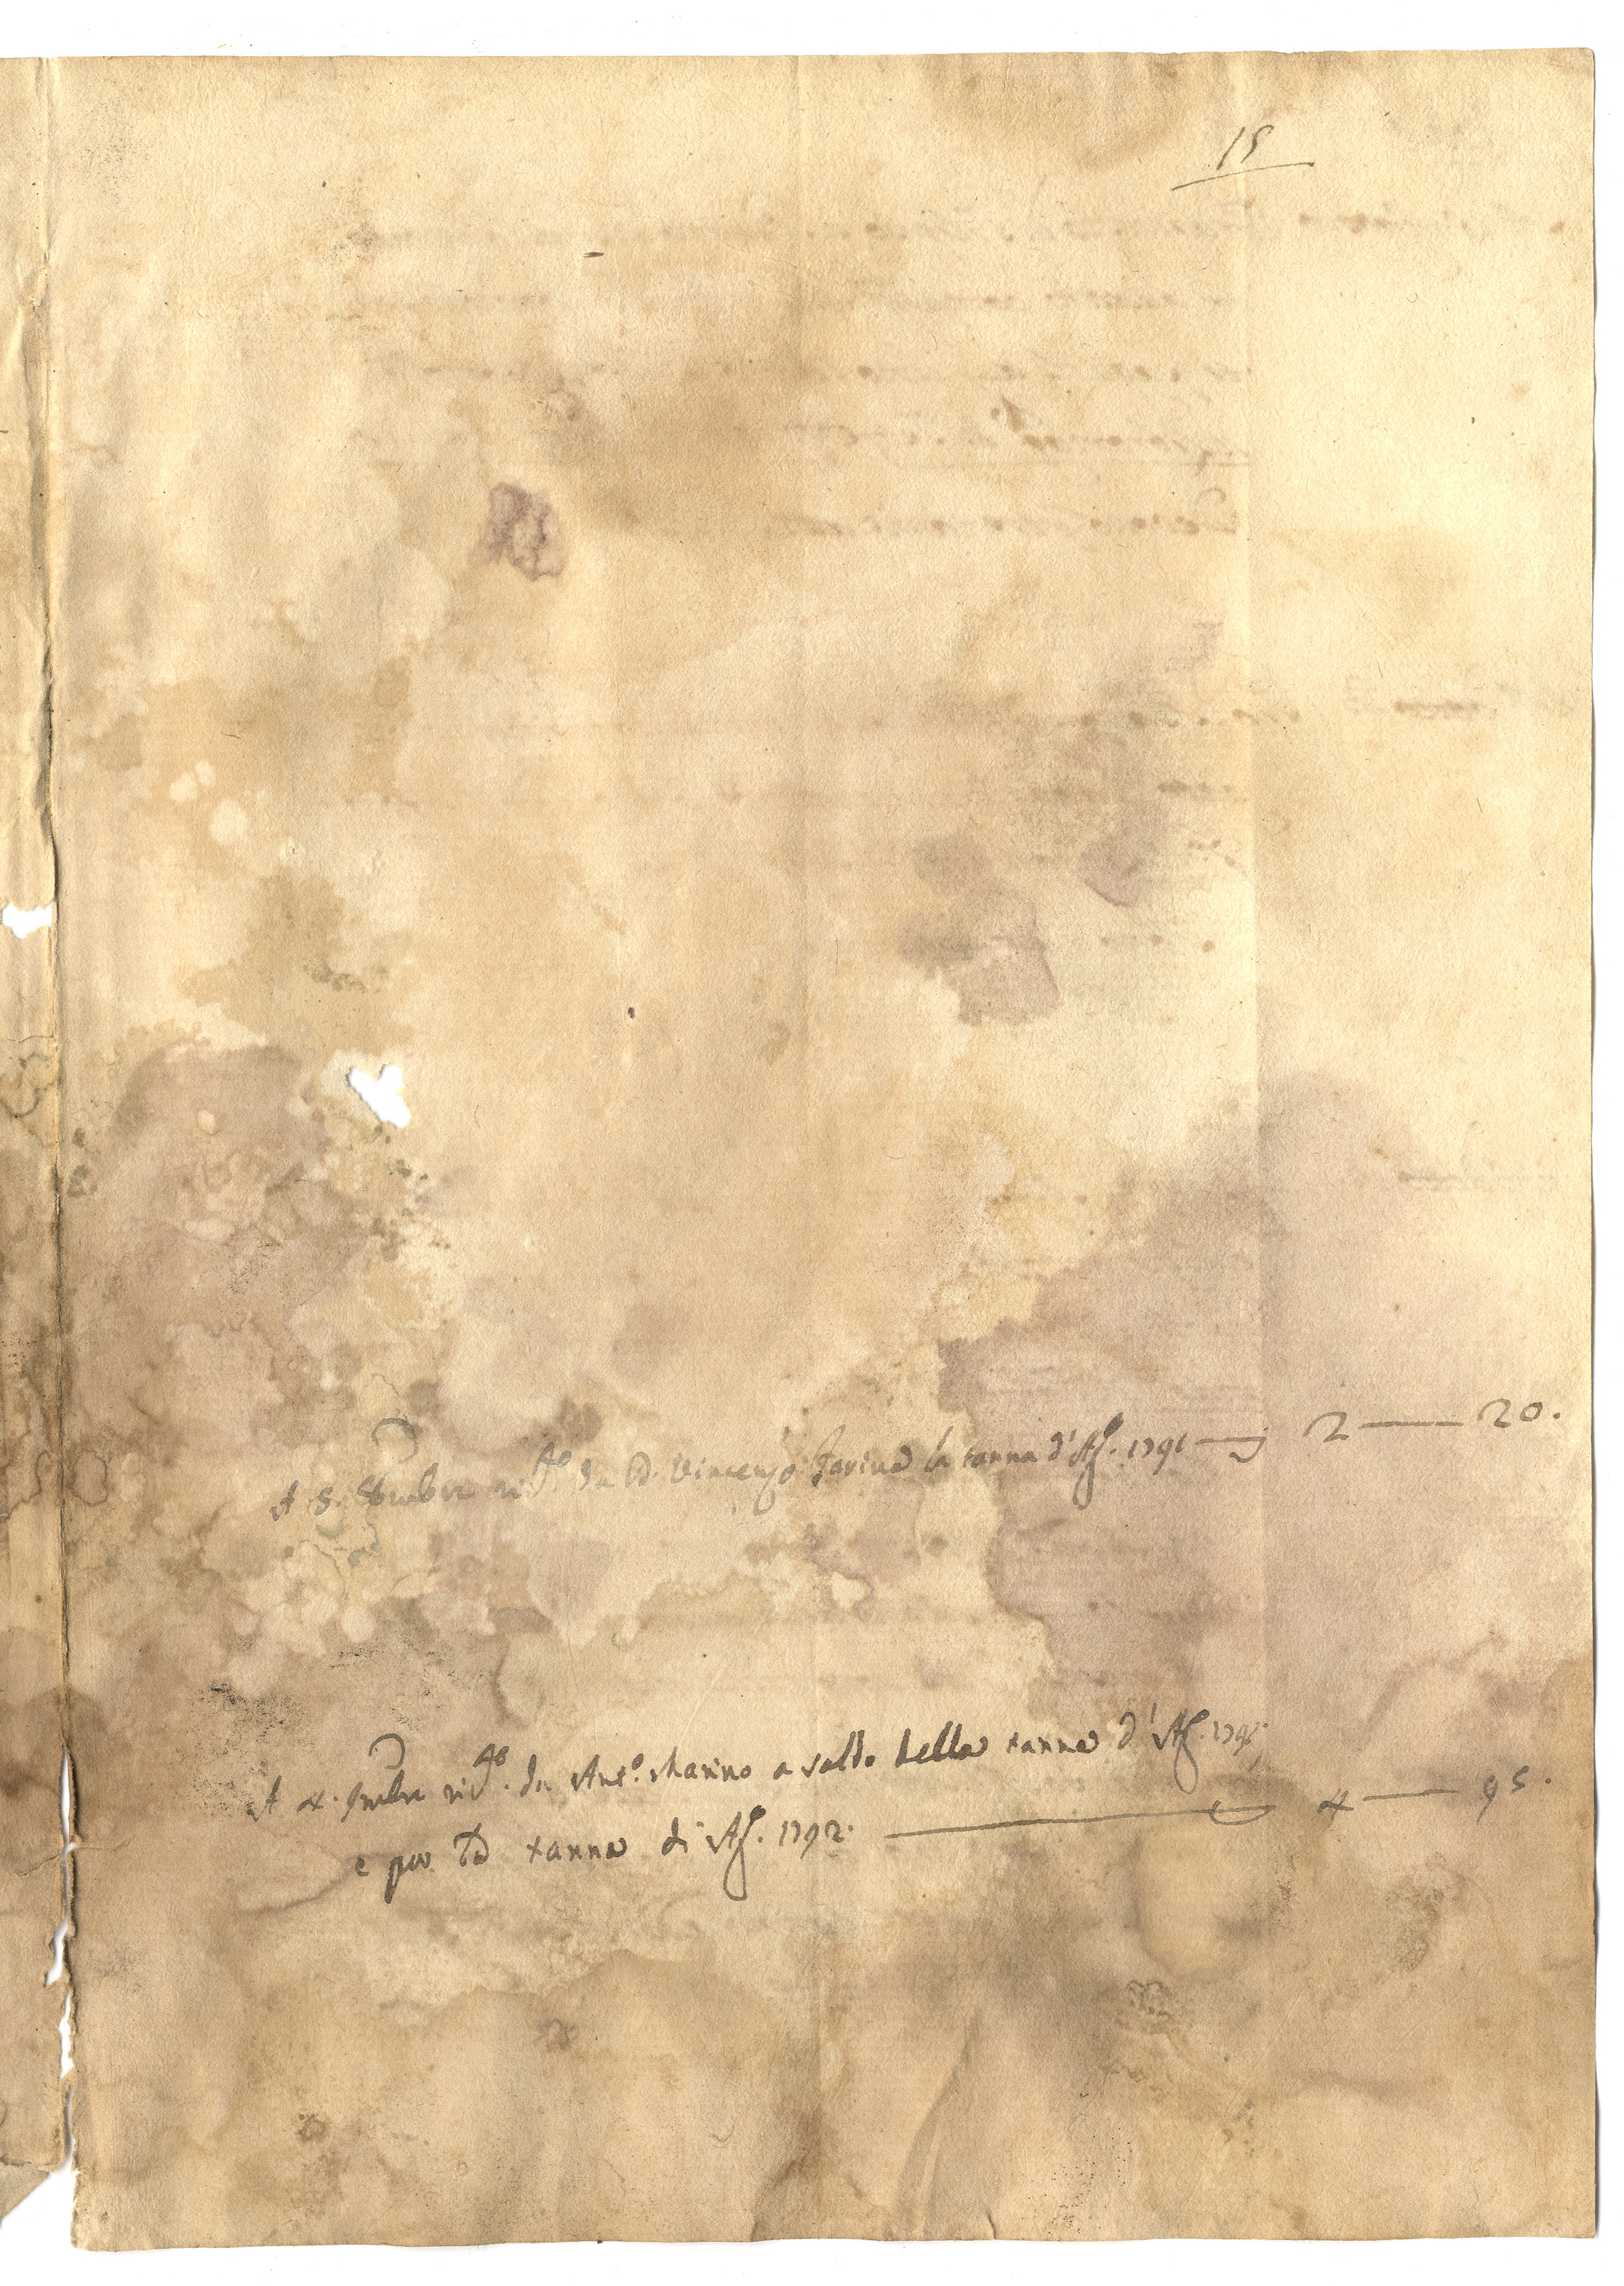 15
A 5. 8mbre ric.to da D. Vincenzo Farina la tanna d'Ag.to 1791 — 2 — 20.
A 4. Xmbre ric.to da Ant.o Marino a saldo della tanna d'Ag.to
e per la tanna di Ag.to 1792. — 4 — 95.